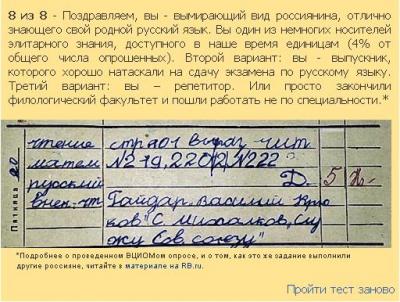 8 из 8 - Поздравляем, вы - вымирающий вид россиянина, отлично
знающего свой родной русский язык. Вы один из немногих носителей
элитарного знания, доступного в наше время единицам (4% от
общего числа опрошенных). Второй вариант: вы - выпускник,
которого хорошо натаскали на сдачу экзамена по русскому языку.
Третий вариант: вы – репетитор. Или просто закончили
филологический факультет и пошли работать не по специальности.*
Пятница
чтение стр 201 выраз. чит.
матем №219, 220(2), №222
русский Д. 5
внек. чт Гайдар. Василий Крю
ков" С. Михалков, "Слу
жу Сов. союзу"
*Подробнее о проведенном ВЦИОМом опросе, и о том, как это же задание выполнили
другие россияне, читайте в материале на RB.ru.
Пройти тест заново